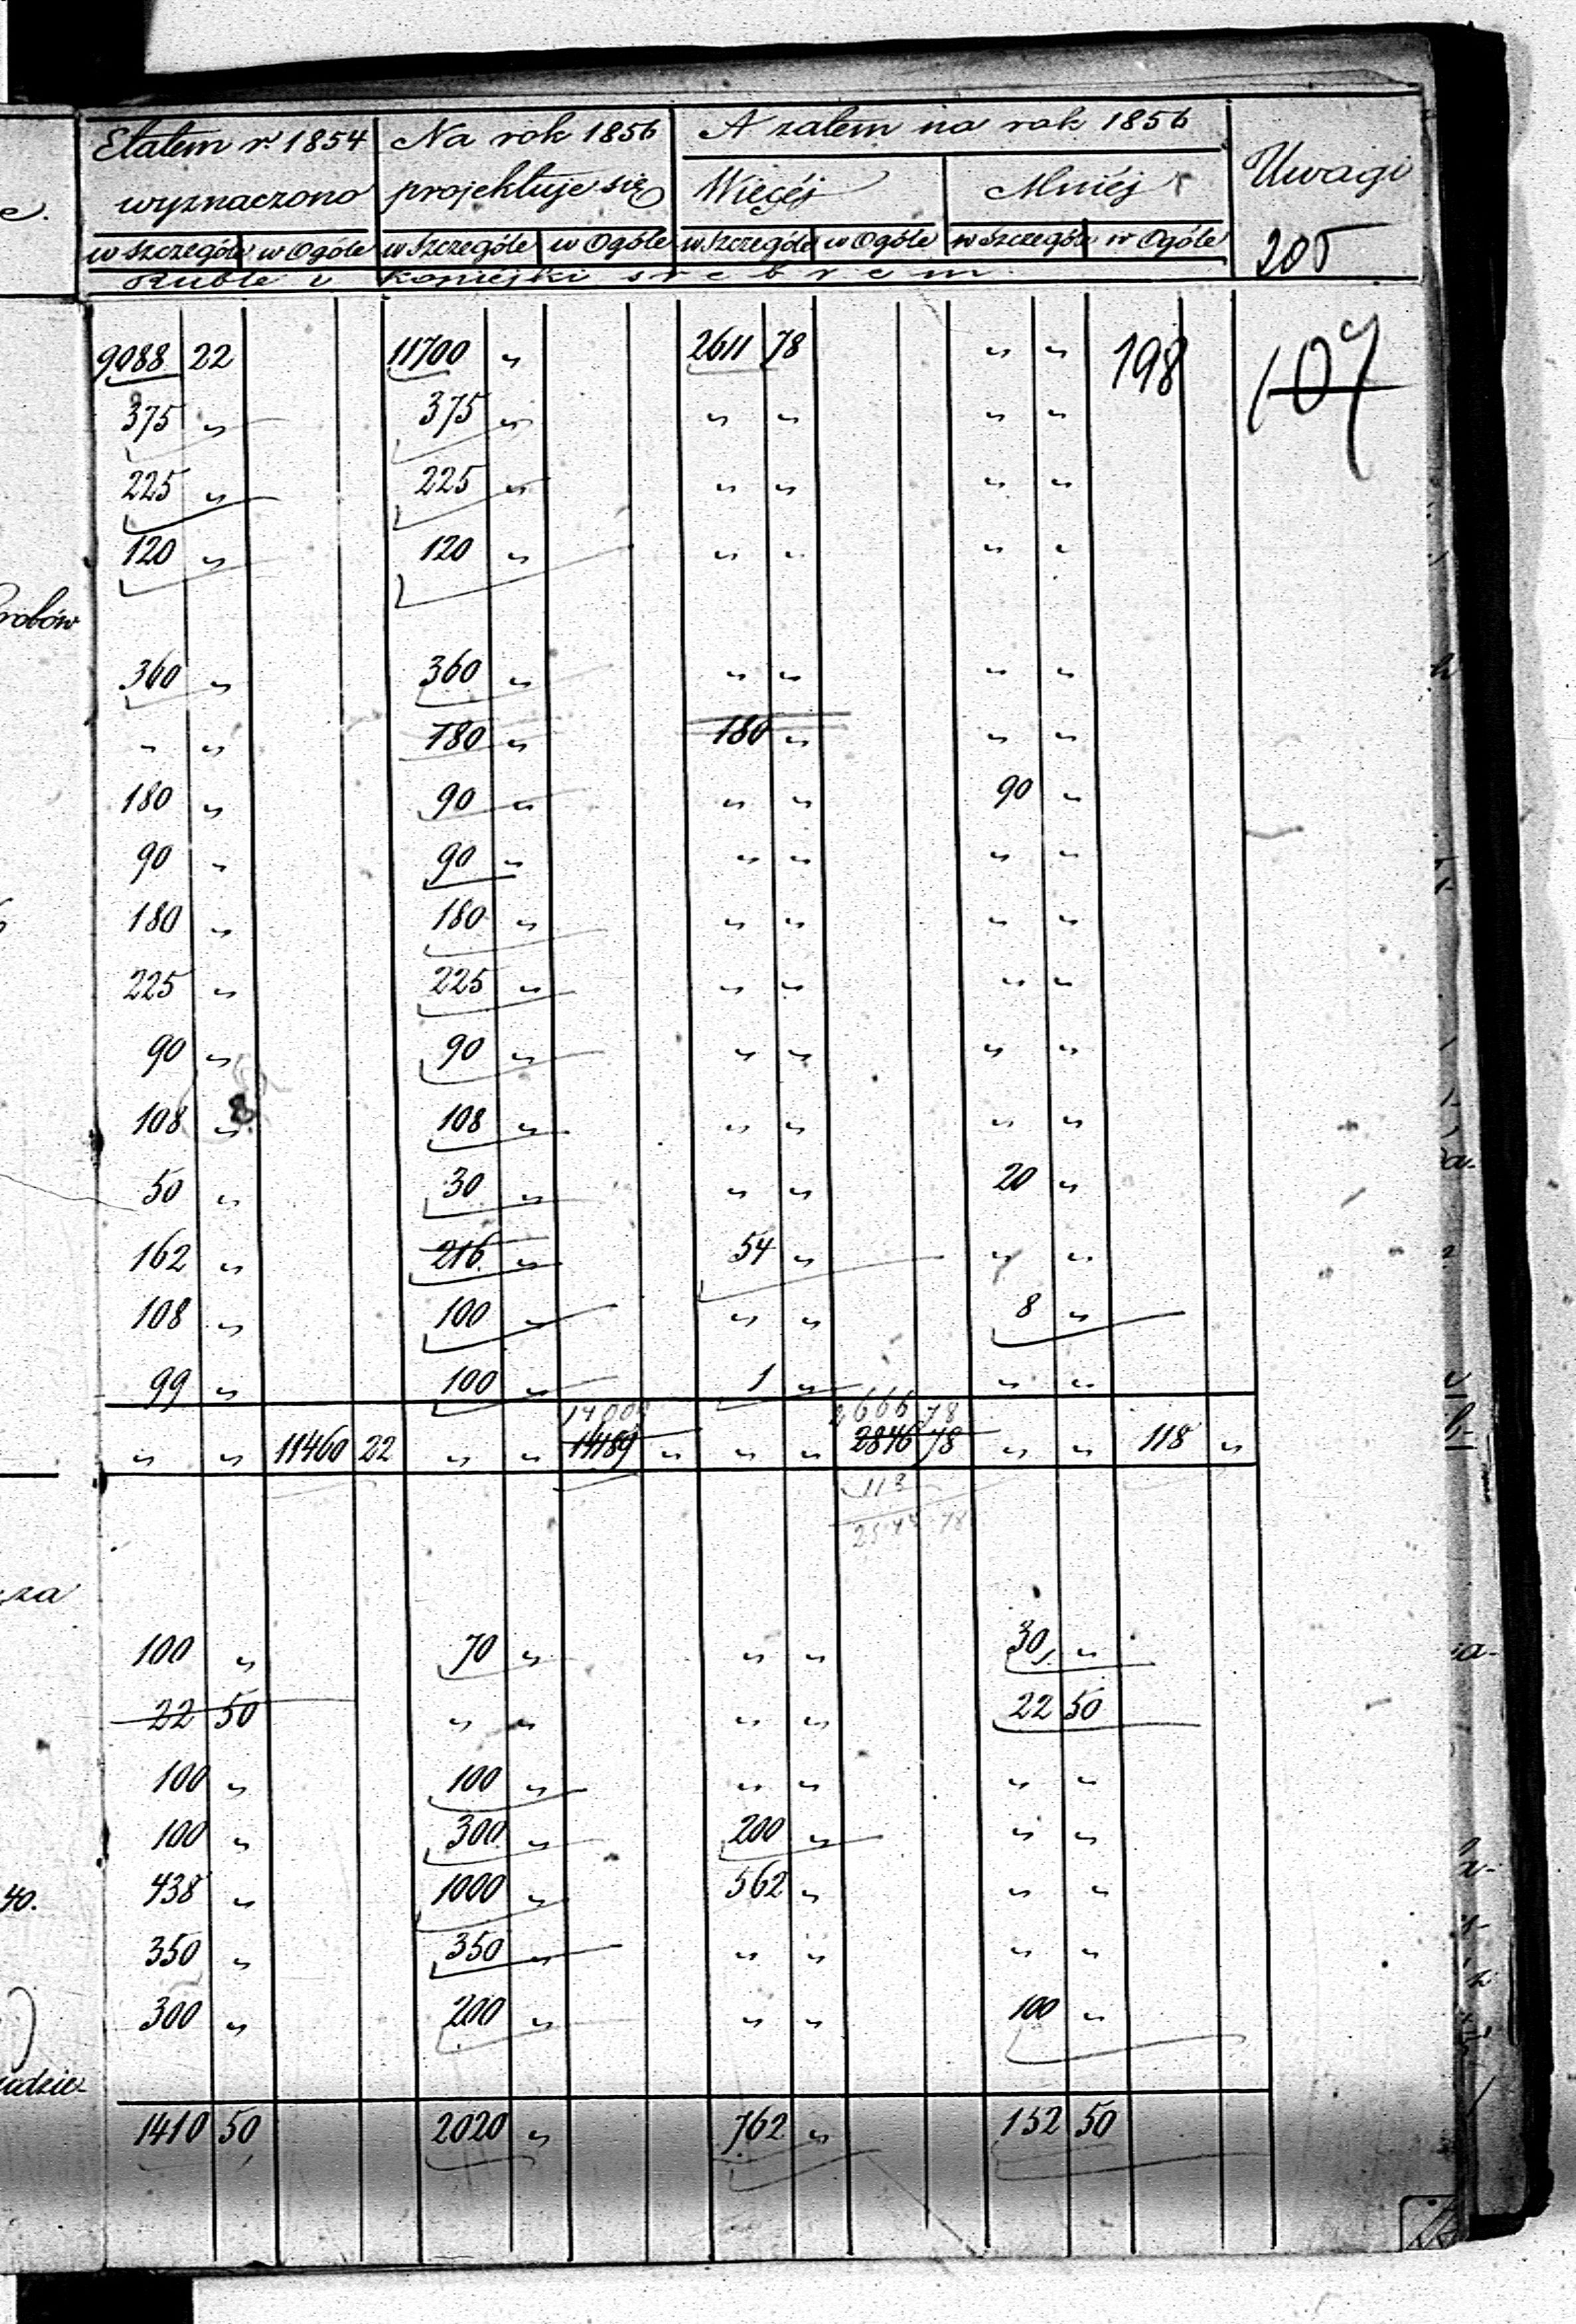 Etatem r. 1854 Na rok 1856 A zatem na rok 1856 Uwagi
wyznaczono projektuje się Więcéj Mniéj
w Szczególe w Ogóle w Szczególe w Ogóle w Szczególe w Ogóle w Szczególe w Ogóle 205
Ruble i Kopiejki srebrem
9088 22 11700 " 2611 78 " " 198 107
375 " 375 " " " " "
225 " 225 " " " " "
120 " 120 " " " " "
robów
360 " 360 " " " " "
" " 180 " 180 " " "
180 " 90 " " " 90 "
90 " 90 " " " " "
180 " 180 " " " " "
225 " 225 " " " " "
90 " 90 " " " " "
108 " 108 " " " " "
50 " 30 " " " 20 "
162 " 216 " 54 " " "
108 " 100 " " " 8 "
99 " 100 " 1 " " "
2666 78
" " 11460 22 " " 14189 " " " 2846 78 " " 118 "
118
za
100 " 70 " " " 30 "
22 50 " " " " 22 50
100 " 100 " " " " "
100 " 300 " 200 " " "
40. 438 " 1000 " 562 " " "
350 " 350 " " " " "
300 " 200 " " " 100 "
1410 50 2020 " 762 " 152 50